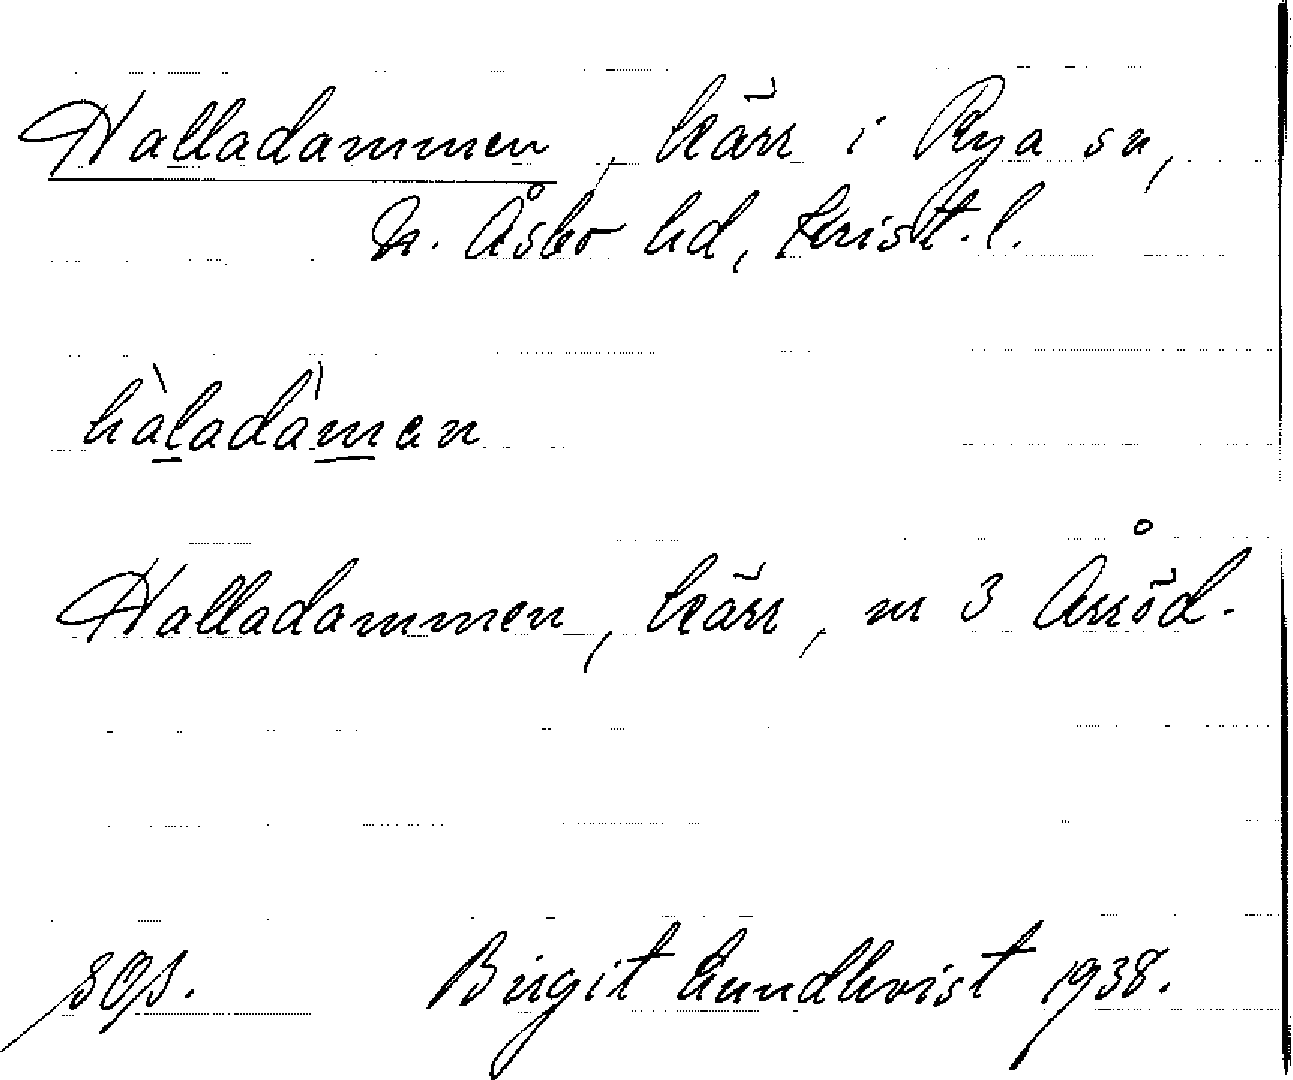 Halladammen, kärr i Rya sn,
N. Åsbo hd, Krist. l.
hàladàmen
Halladammen, kärr, nr 3 Årröd.
Birgit Lundkvist 1938.